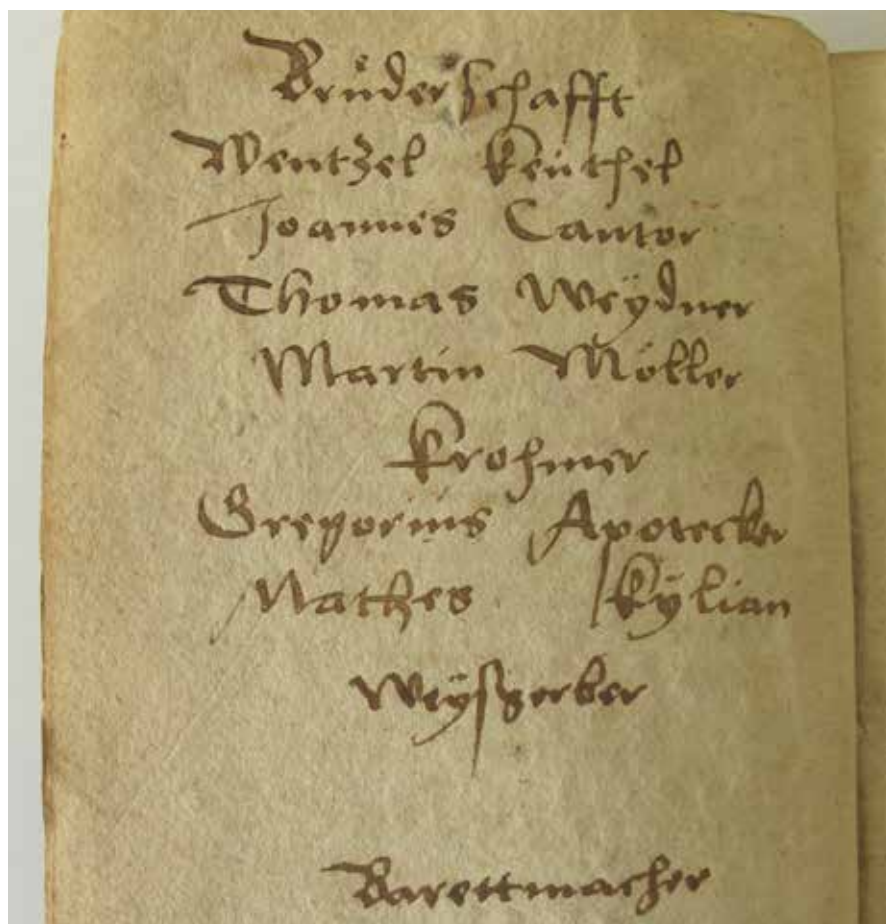 Brüderschafft
Wentzel Keüthel
Joannes Cantor
Thomas Weÿdner
Martin Möller
Krohmer
Gregorius Apotecker
Mathes Kÿlian
Weÿsgerber
Barettmacher